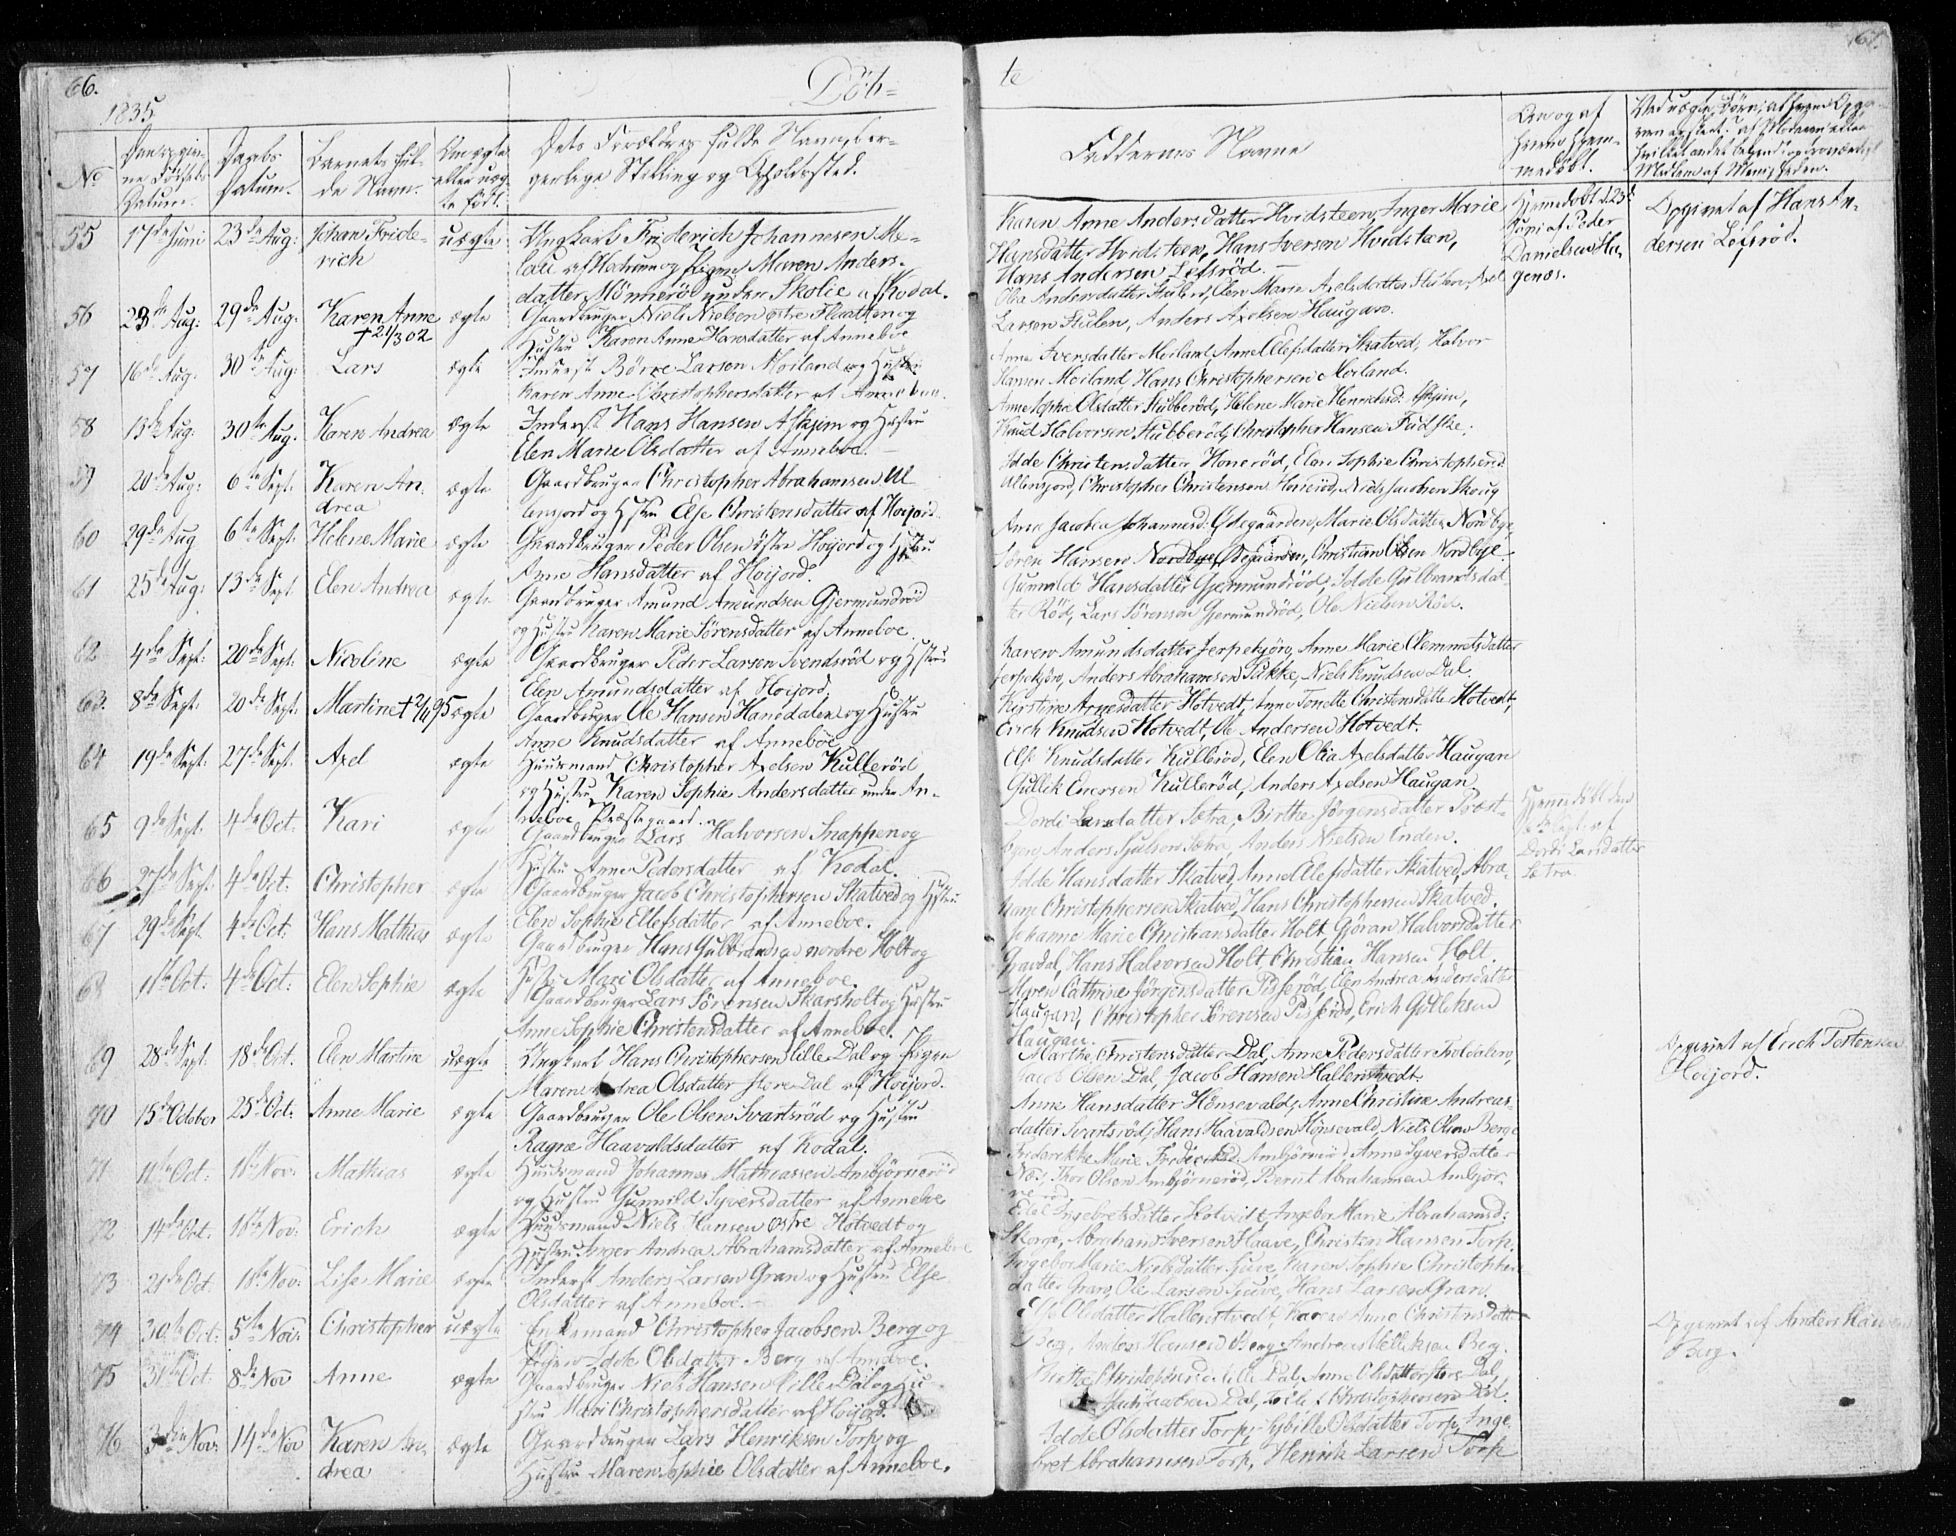 66.
Döb=
te
67.
1835
No
Den opgiv-
ne Födsels
Datum.
Daabs
Datum.
Barnets ful-
de Navn.
Om ægte
eller uæg-
te födt.
Dets Forældres fulde Navne, bor-
gerlige Stilling og Opholdssted.
Faddernes Navne
Om og af
hvem hjem-
medöbt.
55 17de Juni 23de Aug: Johan Fride-
rich
uægte Ungkarl Friderich Johannesen Me-
datter Mönnerö under Skolie af Kodal.
Karen Anne Andersdatter Hvidsteen, Inger Marie
Hansdatter Hvidsteen, Hans Iversen Hvidsteen,
Hans Andersen Löfsröd.
Hjemmedöbt d. 23d
Juni af Peder
Danielsen Ha-
genæs.
Opgivet af Hans An-
dersen Löfsröd.
56 23de Aug: 29de Aug: Karen Anne
† 21/3 02
ægte Gaardbruger Niels Nielsen östre Hvatten og
Hustru Karen Anne Hansdatter af Anneboe
Larsen Stulen, Anders Axelsen Haugan.
57 16de Aug: 30te Aug: Lars ægte Inderst Börre Larsen Moiland og Hustru
Karen Anne Christophersdatter af Anneboe.
Anne Iversdatter Moiland, Anne Ellefsdatter Skatved, Halvor
Hansen Moiland, Hans Christophersen Moiland.
58 13de Aug: 30te Aug. Karen Andrea ægte Inderst Hans Hansen Askjem og Hustru
Elen Marie Olsdatter af Anneboe.
Anne Sophie Olsdatter Stubberöd, Helene Marie Henriksd: Askjem,
Knud Halvorsen Stubberöd, Christopher Hansen Fudske.
59 20de Aug: 6te Sept. Karen An-
drea
ægte Gaardbruger Christopher Abrahamsen Al-
lensjord og Hstru Else Christensdatter af Hoijord
Idde Christensdatter Honeröd, Elen Sophie Christophersd
Allensjord, Christopher Christensen Honeröd, Niels Jacobsen Skoug
60 29de Aug 6te Sept. Helene Marie ægte Gaardbruger Peder Olsen östre Hoijord og Hstru
Anne Hansdatter af Hoijord.
Anne Jacobia Johannesd. Ödegaarden, Marie Olsdatter Nordbye,
Sören Hansen Nordbye Ödegaarden, Christian Olsen Nordbye
61 25de Aug: 13de Sept. Elen Andrea ægte Gaardbruger Amund Amundsen Gjermundröd
og Hustru Karen Marie Sörensdatter af Anneboe.
Gunnild Hansdatter Gjermundröd, Idde Gulbrandsdat
ter Röd, Lars Sörensen Gjermundröd, Ole Nielsen Röd.
62 4de Sept: 20de Sept: Nicoline ægte Gaardbruger Peder Larsen Svendsröd og Hstru
Elen Amundsdatter af Hoijord
Karen Amundsdatter Jerpekjön, Anne Marie Clemmetsdatter
Jerpekjön, Anders Abrahamsen Sukke, Niels Knudsen Dal.
63. 8de Sept: 20de Sept: Martine † 2/11 95 ægte Gaardbruger Ole Hansen Hanedalen og Hustru
Anne Knudsdatter af Anneböe
Kirstine Arnesdatter Hotvedt, Anne Tonette Christensdatter Hotvedt,
Erich Knudsen Hotvedt, Ole Andersen Hotvedt.
64 19de Sept: 27de Sept. Axel ægte Huusmand Christopher Axelsen Kulleröd
og Hustru Karen Sophie Andersdatter under An-
neboe Præstegaard.
Else Knudsdatter Kulleröd, Elen Olia Axelsdatter Haugan
Gullik Enersen Kulleröd, Anders Axelsen Haugan
65 9de Sept: 4de Oct: Kari ægte Gaardbruger Lars Halvorsen Snappen og
Hustru Anne Pedersdatter af Kodal.
Dordi Larsdatter Sætra, Birthe Jörgensdatter Svart-
Anders Sjulsen Sætra, Anders Nielsen Enden.
Hjemmedöbt den
Dordi Larsdatter
Sætra
66 27de Sept: 4de Oct: Christopher ægte Gaardbruger Jacob Christophersen Skatved og Hstru
Elen Sophie Ellefsdatter af Anneboe.
Idde Hansdatter Skatved, Anne Elefsdatter Skatved, Abra-
ham Christophersen Skatved, Hans Christophersen Skatved.
67 29de Sept. 4de Oct: Hans Mathias ægte Gaardbruger Hans Gulbrandsen nordre Holt og
Hustru Mari Olsdatter af Anneboe.
Johanne Marie Christiansdatter Holt, Göran Halvorsdatter
Gravdal, Hans Halvorsen Holt, Christian Hansen Holt.
68 1ste Oct: 4de Oct: Elen Sophie ægte Gaardbruger Lars Sörensen Skarsholt og Hustru
Anne Sophie Christensdatter af Anneboe.
Maren Cathrine Jörgensdatter Pisseröd, Elen Andrea Andersdatter
Haugan, Christopher Sörensen Pisseröd, Erich Gulliksen
Haugan.
69 28de Sept. 18de Oct. Elen Martine uægte Ungkarl Hans Christophersen lille Dal og Pigen
Maren Andrea Olsdatter store Dal af Hoijord.
Marthe Christensdatter Dal, Anne Pedersdatter
Jacob Olsen Dal, Jacob Hansen Hallenstvedt.
Opgivet af Erich Tostensen
Hoijord.
70 15de October 25de Oct: Anne Marie ægte Gaardbruger Ole Olsen Svartsröd og Hustru
Ragne Haavaldsdatter af Kodal.
Anne Hansdatter Hönsevald, Anne Christine Andreas-
datter Svartsröd, Hans Haavaldsen Hönsevald, Niels Olsen Berge
71 11te Oct: 1ste Nov: Mathias ægte Huusmand Johannes Mathiassen Ambjörneröd
og Hustru Gunnild Syversdatter af Anneboe
Friderikke Marie Frideriksd. Ambjörneröd, Anne Syversdatter
Næs, Thor Olsen Ambjörneröd, Bernt Abrahamsen Ambjör-
neröd
72 14de Oct: 1ste Nov: Erich ægte Huusmand Niels Hansen östre Hotvedt og
Hustru Inger Andrea Abrahamsdatter af Anneboe
Edel Ingebretsdatter Hotvedt, Ingebor Marie Abrahamsd:
Skorge, Abraham Iversen Haave, Christen Hansen Torp.
73 21de Oct: 1ste Nov: Lise Marie ægte Inderst Anders Larsen Gran og Hustru Else
Olsdatter af Anneboe.
Ingebor Marie Nielsdatter Sjuve, Karen Sophie Christopher-
datter Gran, Ole Larsen Sjuve, Hans Larsen Gran.
74 30te Oct: 5te Nov: Christopher uægte Enkemand Christopher Jacobsen Berg og
Pigen Idde Olsdatter Berg af Anneboe.
Else Olsdatter Hallenstvedt, Karen Anne Christensdatter
Berg, Anders Hansen Berg, Andreas Berg.
Opgivet af Anders Hansen
Berg.
75 31te Oct: 8de Nov Anne ægte Gaardbruger Niels Hansen lille Dal og Hu-
stru Mari Christophersdatter af Hoijord.
Birthe Christophersd. lille Dal, Anne Olsdatter store Dal,
Jacobsen Dal, Christophersen Dal.
76 3die Nov: 14de Nov Karen An-
drea
ægte Gaardbruger Lars Henriksen Torp og
Hustru Maren Sophie Olsdatter af Anneboe.
Idde Olsdatter Torp, Sybille Olsdatter Torp, Inge-
bret Abrahamsen Torp, Henrik Larsen Torp